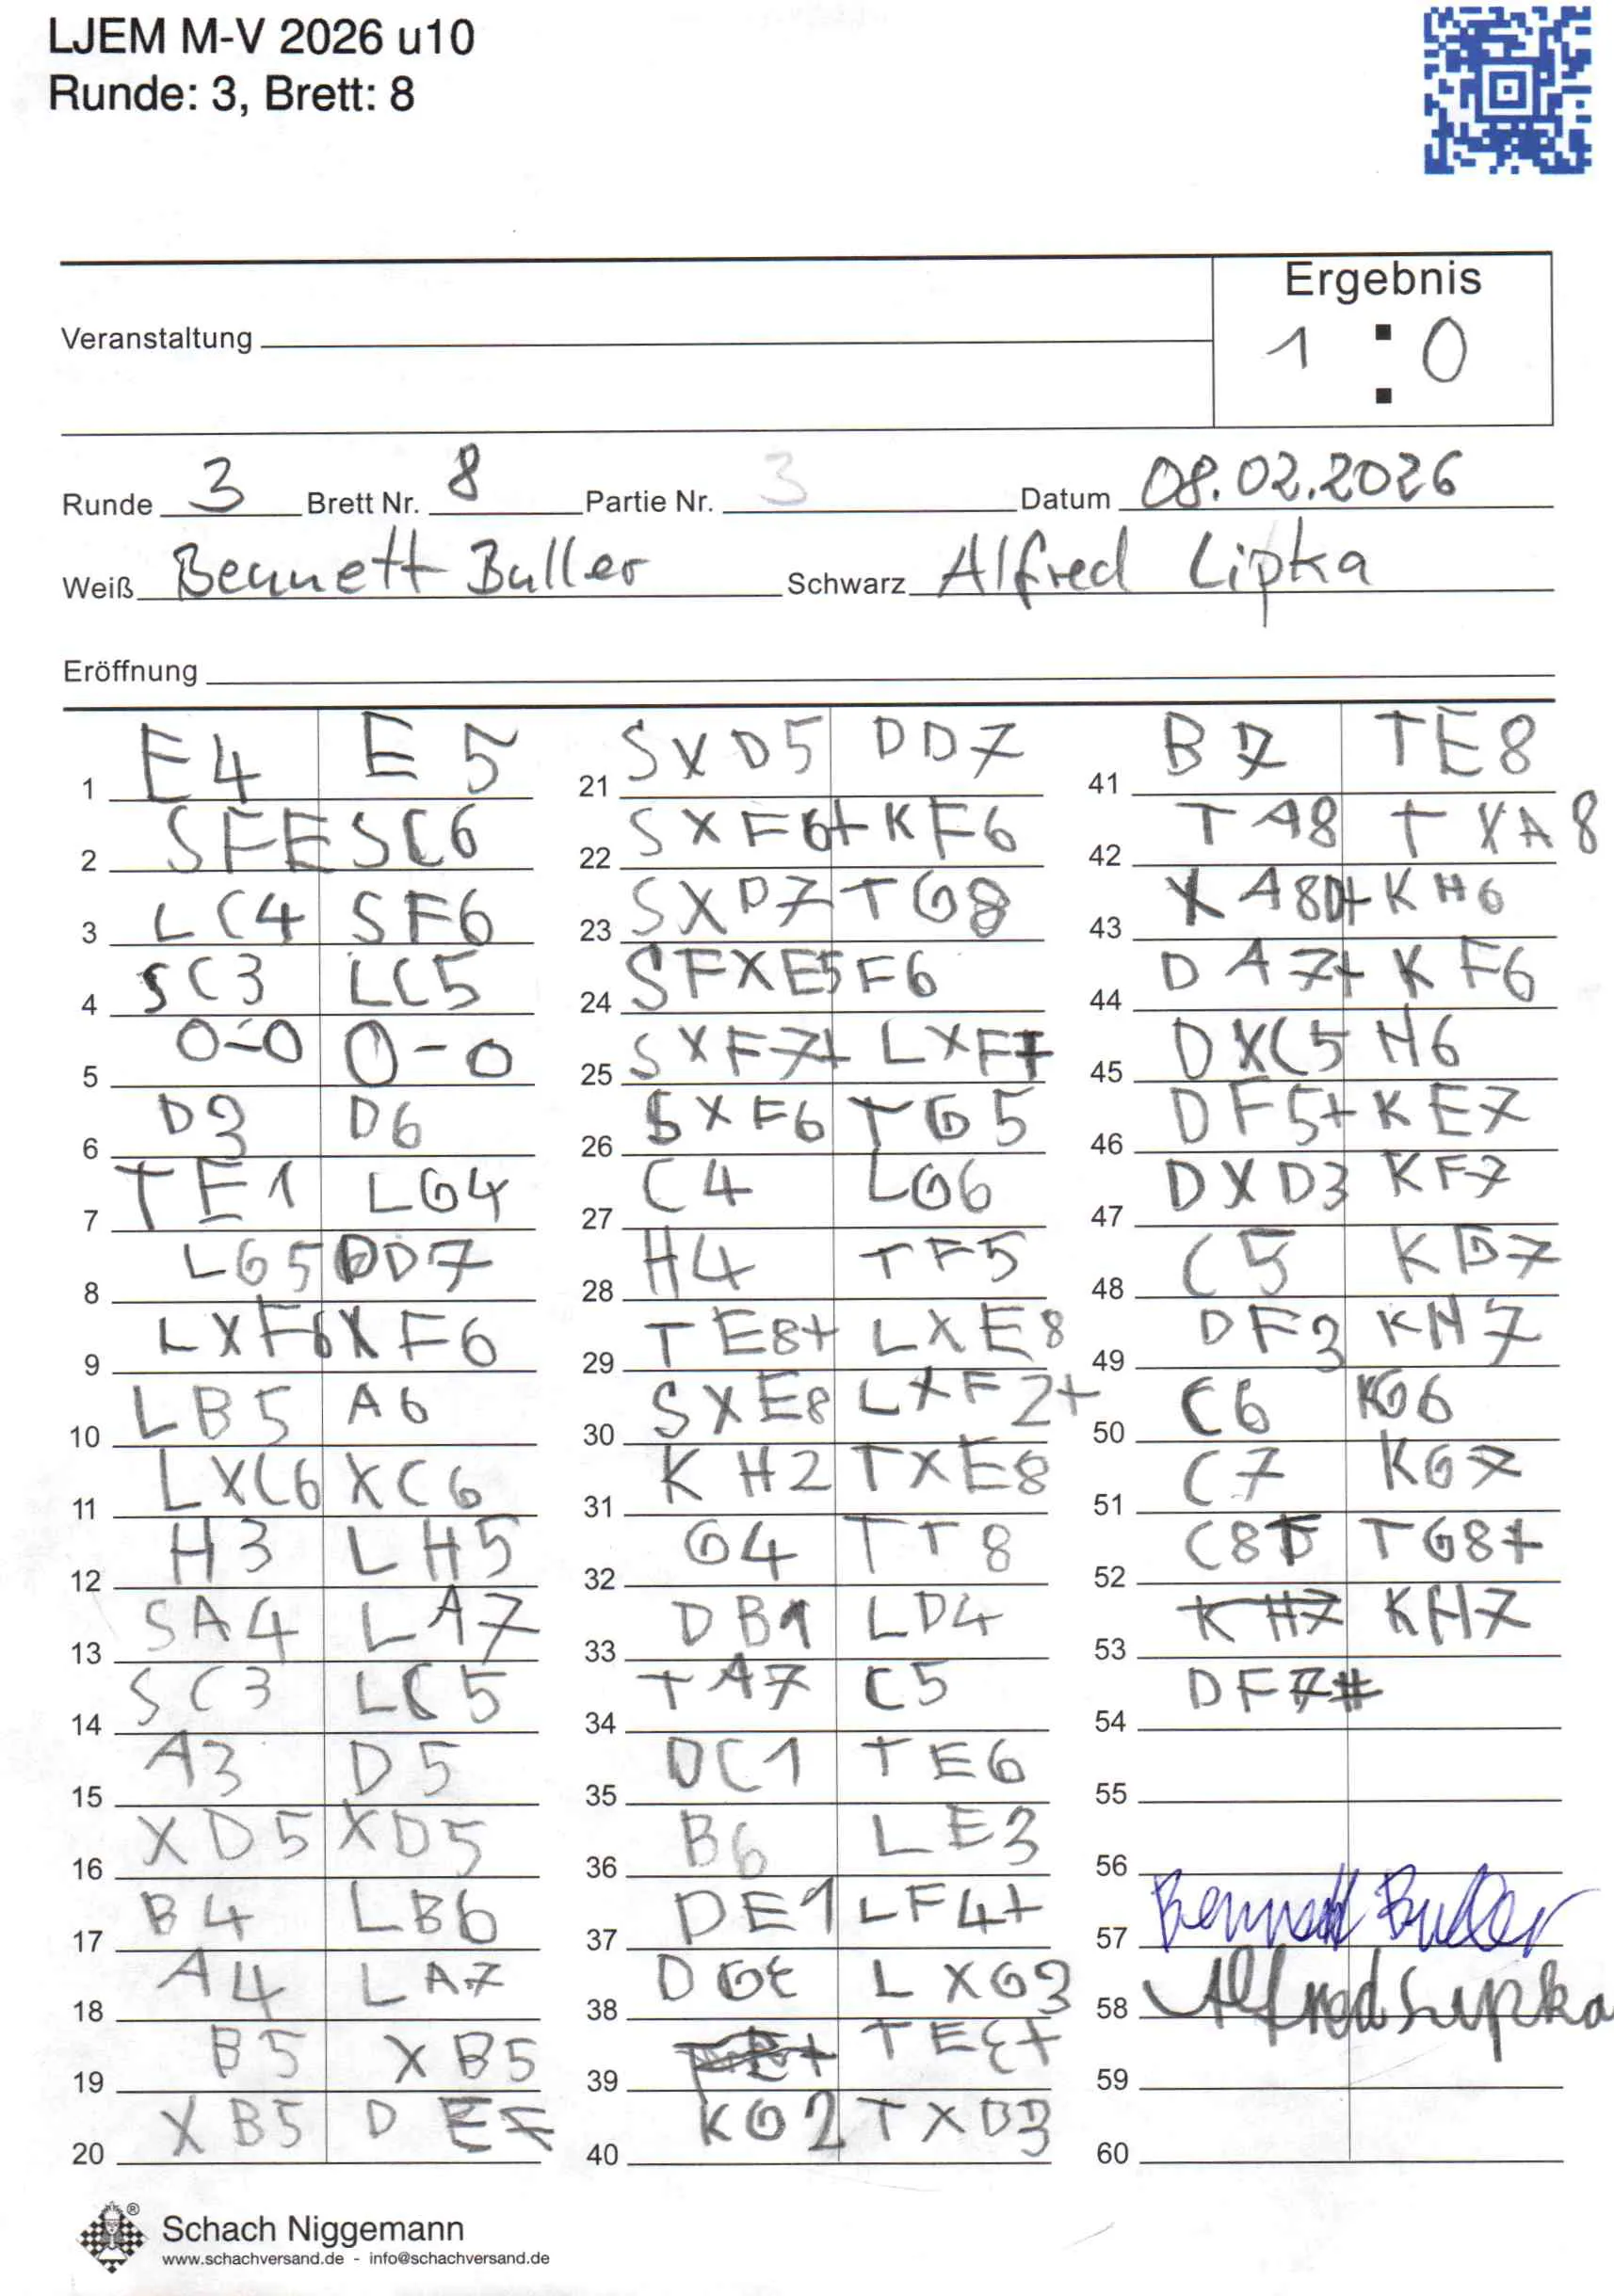 LJEM M-V 2026 u10
Runde: 3, Brett: 8
Ergebnis
1 : 0
Veranstaltung
Runde 3 Brett Nr. 8 Partie Nr. 3 Datum 08.02.2026
Weiß Bennett Buller Schwarz Alfred Lipka
Eröffnung
1 E4 E5
2 SFE SC6
3 LC4 SF6
4 SC3 LC5
5 0-0 0-0
6 D3 D6
7 TE1 LG4
8 LG5 DD7
9 LXF6 XF6
10 LB5 A6
11 LXC6 XC6
12 H3 LH5
13 SA4 LA7
14 SC3 LC5
15 A3 D5
16 XD5 XD5
17 B4 LB6
18 A4 LA7
19 B5 XB5
20 XB5 D
21 SXD5 DD7
22 SXF6+ KF6
23 SXD7 TG8
24 SFXE5 F6
25 SXF7+ LXF7
26 SXF6 TG5
27 C4 LG6
28 H4 TF5
29 TE8+ LXE8
30 SXE8 LXF2+
31 KH2 TXE8
32 G4 TT8
33 DB1 LD4
34 TA7 C5
35 DC1 TE6
36 B6 LE3
37 DE1 LF4+
38 LXG3
39
40 KG2 TXD3
41 B7 TE8
42 TA8 TXA8
43 XA8D+ KH6
44 DA7+ KF6
45 DXC5 H6
46 DF5+ KE7
47 DXD3 KF7
48 C5 KG7
49 DF3 KH7
50 C6 KG6
51 C7 KG7
52 C8 TG8+
53 KH7 KH7
54 DF7#
55
56
57 Bennett Buller
58 Alfred Lipka
59
60
®
Schach Niggemann
www.schachversand.de - info@schachversand.de